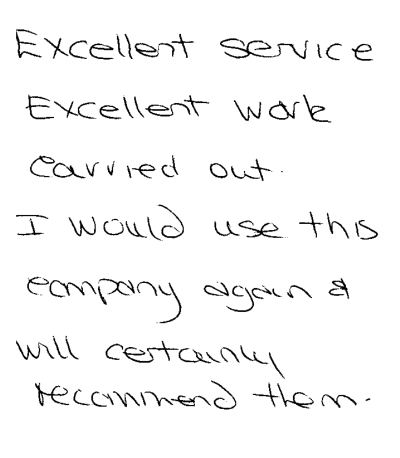 Excellent service
Excellent work
carried out.
I would use this
company again &
will certainly
recommend them.